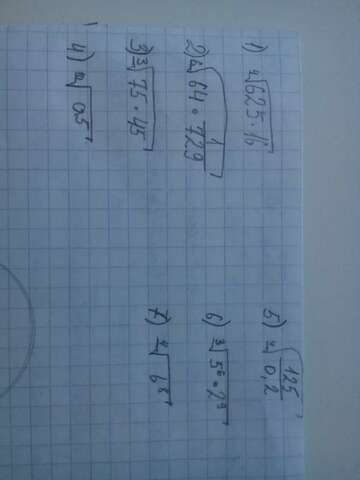 1) ⁴√625·16
2) ⁶√64·729
3) ³√75·45
4) √0,5
5) ⁴√125/0,2
6) ³√5⁶·2⁹
7) ⁴√6⁸